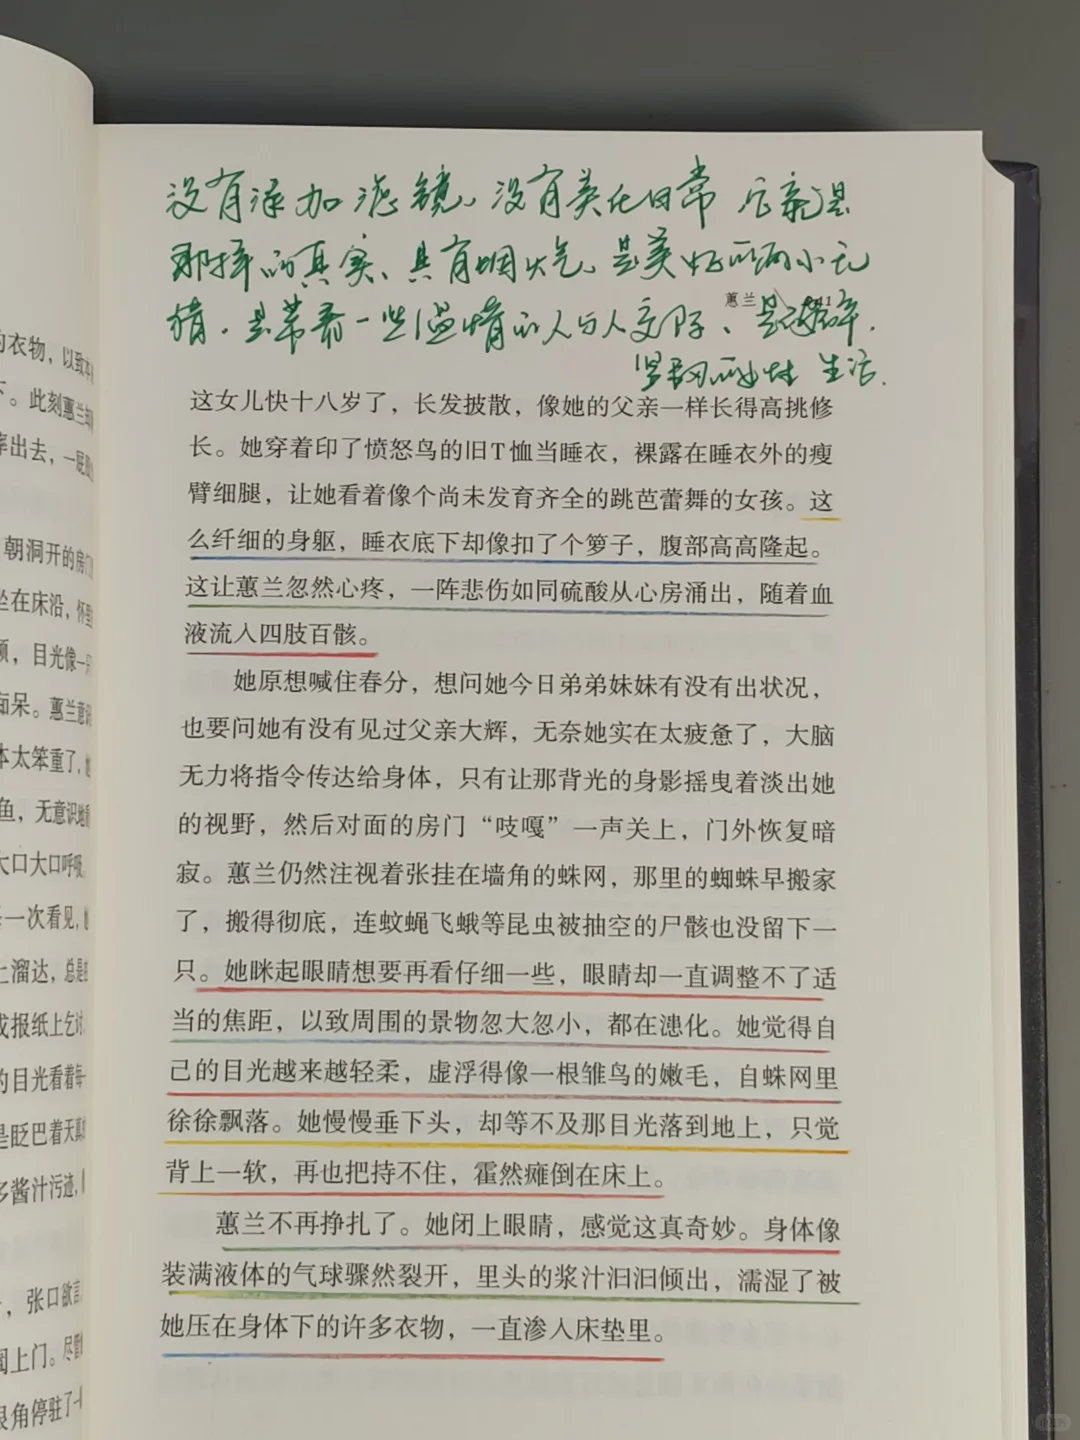 没有添加滤镜、没有美化日常 它就是
那样的真实、具有烟火气。是美好的两小无
猜。是带着一些温情的人与人交际、是
坚韧的女性 生活.
蕙兰
这女儿快十八岁了，长发披散，像她的父亲一样长得高挑修
长。她穿着印了愤怒鸟的旧T恤当睡衣，裸露在睡衣外的瘦
臂细腿，让她看着像个尚未发育齐全的跳芭蕾舞的女孩。这
么纤细的身躯，睡衣底下却像扣了个箩子，腹部高高隆起。
这让蕙兰忽然心疼，一阵悲伤如同硫酸从心房涌出，随着血
液流入四肢百骸。
她原想喊住春分，想问她今日弟弟妹妹有没有出状况，
也要问她有没有见过父亲大辉，无奈她实在太疲惫了，大脑
无力将指令传达给身体，只有让那背光的身影摇曳着淡出她
的视野，然后对面的房门“吱嘎”一声关上，门外恢复暗
寂。蕙兰仍然注视着张挂在墙角的蛛网，那里的蜘蛛早搬家
了，搬得彻底，连蚊蝇飞蛾等昆虫被抽空的尸骸也没留下一
只。她眯起眼睛想要再看仔细一些，眼睛却一直调整不了适
当的焦距，以致周围的景物忽大忽小，都在漶化。她觉得自
己的目光越来越轻柔，虚浮得像一根雏鸟的嫩毛，自蛛网里
徐徐飘落。她慢慢垂下头，却等不及那目光落到地上，只觉
背上一软，再也把持不住，霍然瘫倒在床上。
蕙兰不再挣扎了。她闭上眼睛，感觉这真奇妙。身体像
装满液体的气球骤然裂开，里头的浆汁汩汩倾出，濡湿了被
她压在身体下的许多衣物，一直渗入床垫里。
的衣物，以致
下。此刻蕙兰
出去，一屁股
朝洞开的房门
坐在床沿，怀里
目光像一
痴呆。蕙兰意识
太笨重了，
鱼，无意识地
大口大口呼吸
一次看见，
上溜达，总是
或报纸上乞讨
的目光看着每一
是眨巴着天真
多酱汁污迹，
，张口欲言
上门。尽管
眼角停驻了一